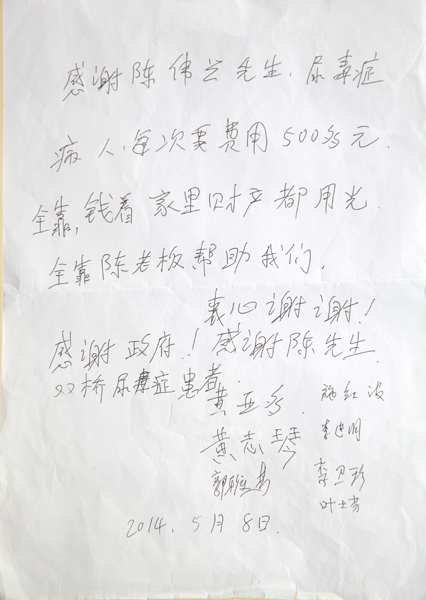 感谢陈伟兰先生.尿毒症
病人.每次要费用500多元.
全靠,钱看家里财产都用光.
全靠陈老板帮助我们.
衷心谢谢!
感谢政府!感谢陈先生.
双桥尿毒症患者.
黄亚多
施红波
李建明
黄志琴
李卫珍
叶士芬
2014.5月8日.